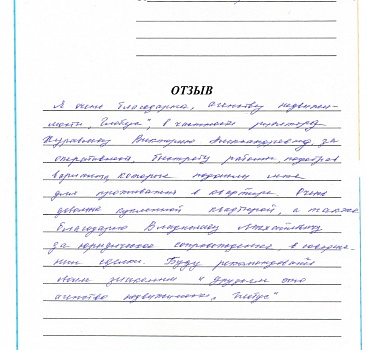 ОТЗЫВ
Я очень благодарна, агенству недвижи-
мости, "Глобус", в частности риэлтору
Журавлёву Виктору Александровичу за
оперативной, быстроту работы, подобрав
варианты, которые подошли мне
для проживания в квартире. Очень
довольна купленной квартирой, а также
благодарна Владиславу
за юридическое сопровождение в соверше-
нии сделки. Буду рекомендовать
своим знакомым и друзьям это
агенство недвижимости, "Глобус"